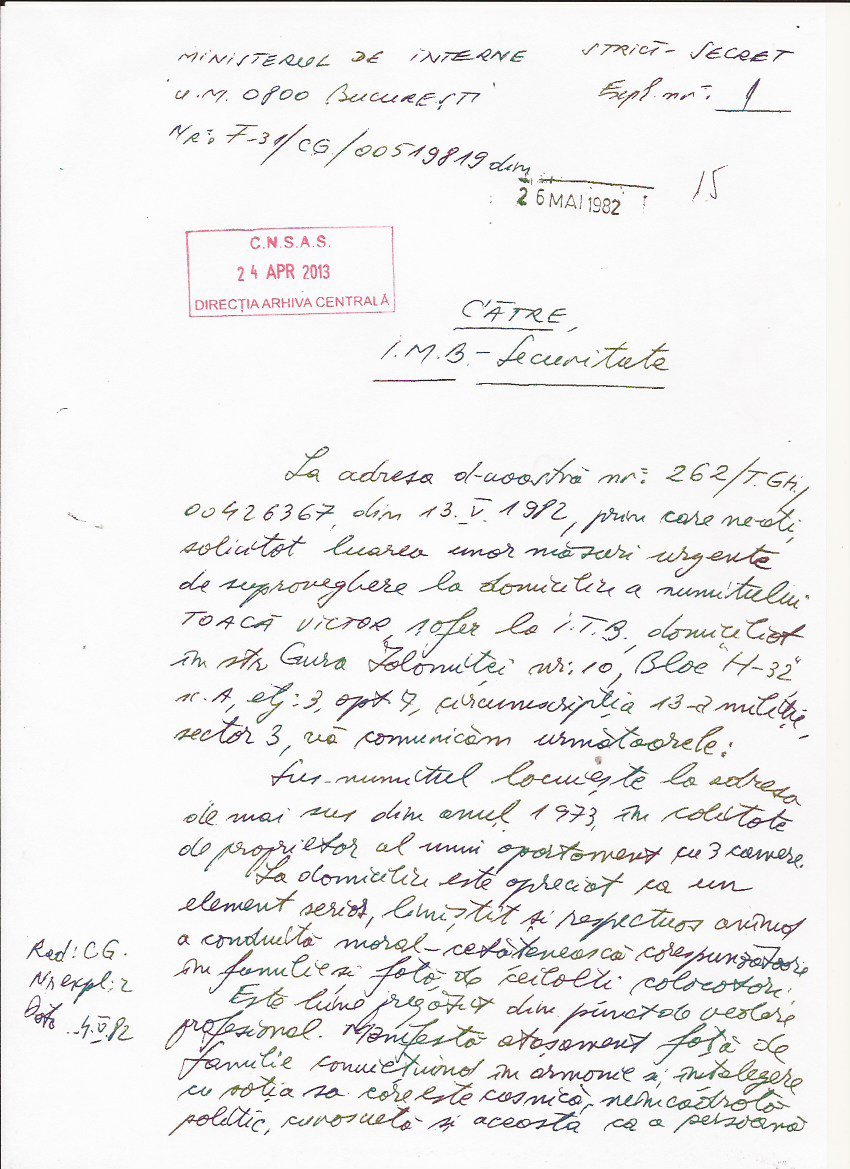 MINISTERUL DE INTERNE STRICT-SECRET
U.M. 0800 BUCUREȘTI Expl. nr. 1
Nr: F-31/CG/00519819 din
26 MAI 1982
15
C.N.S.A.S.
24 APR 2013
DIRECȚIA ARHIVA CENTRALĂ
CĂTRE,
I.M.B.- Securitate
La adresa d-voastră nr: 262/T.GH.,
00426367, din 13.V.1982, prin care ne-ați
solicitat luarea unor măsuri urgente
de supraveghere la domiciliu a numitului
TOACĂ VICTOR, șofer la I.T.B., domiciliat
în str Gura Ialomiței nr: 10, Bloc "H-32"
sc. A, etj: 3, apt 7, circumscripția 13-a miliție,
sector 3, vă comunicăm următoarele:
Sus-numitul locuește la adresa
de mai sus din anul 1973, în calitate
de proprietar al unui apartament cu 3 camere.
La domiciliu este apreciat ca un
element serios, liniștit și respectuos avînd
a conduită moral-cetățenească corespunzătoare
în familie și față de ceilalți colocatari.
Este bine pregătit din punct de vedere
profesional. Manifestă atașament față de
familie conviețuind în armonie și întelegere
cu soția sa care este casnică, neîncadrată
politic, cunoscută și aceasta ca o persoană
Red: CG.
Nr expl: 2
Data 4.V.82